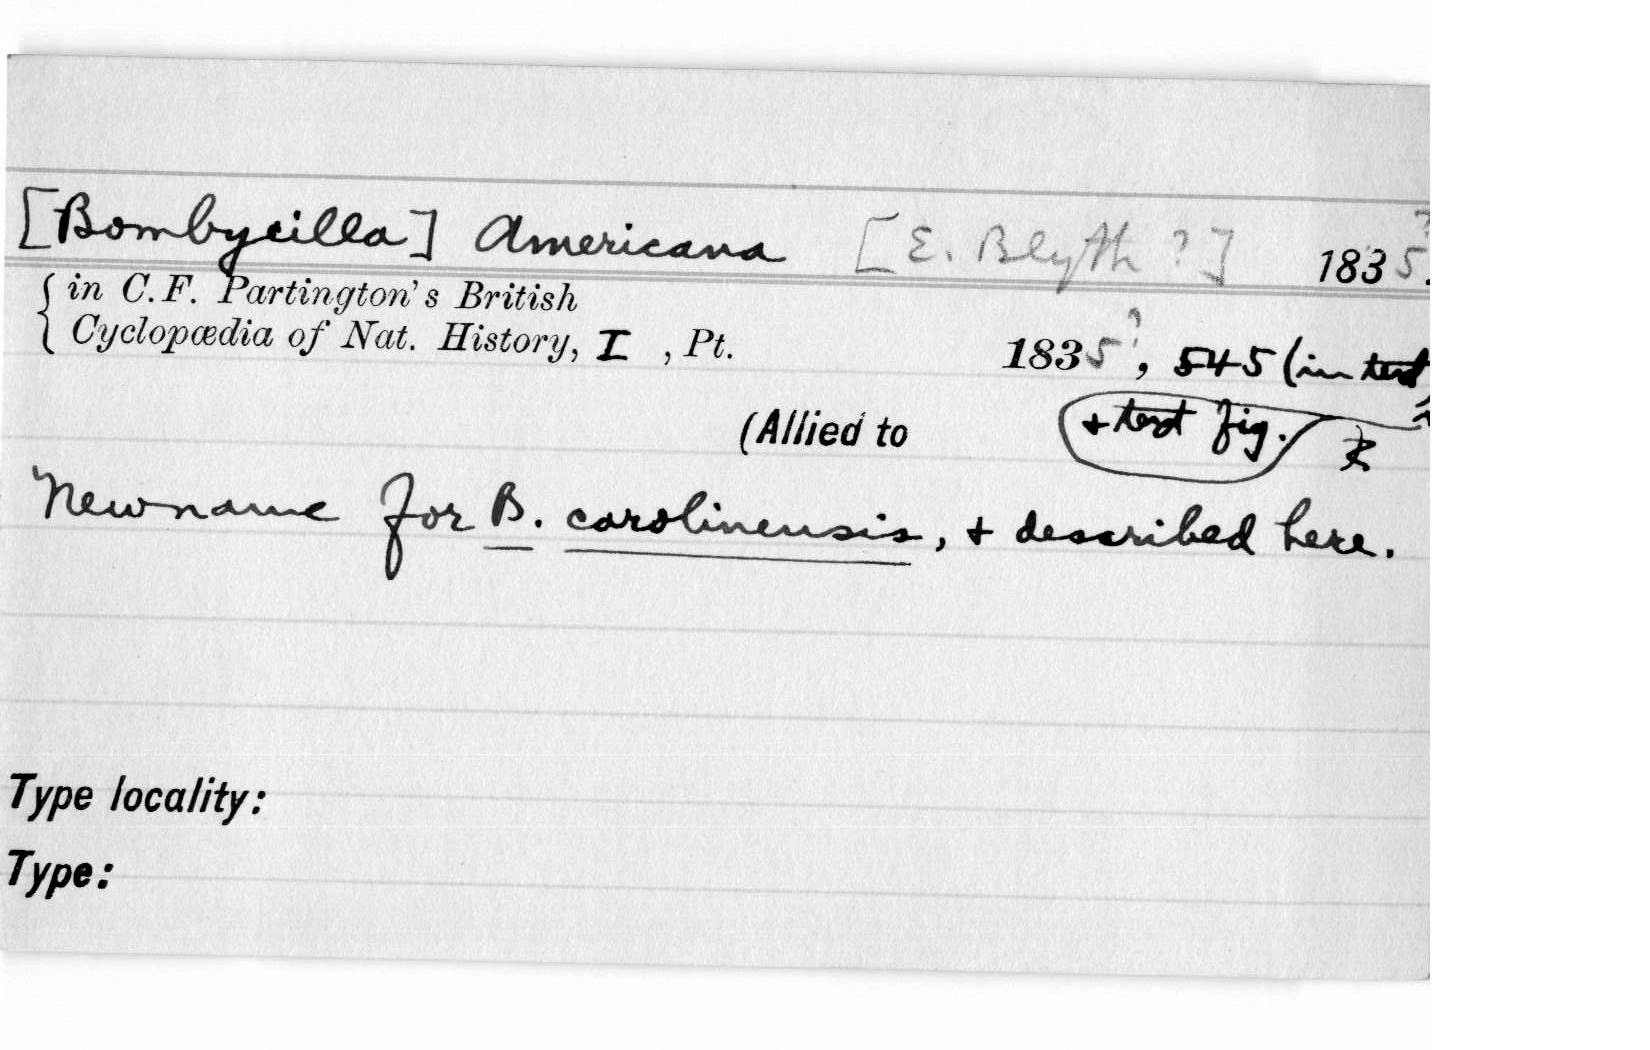 [Bombycilla] Americana [E. Blyth ?] 1835?.
{ in C.F. Partington's British
Cyclopædia of Nat. History, I , Pt. 1835?, 545 (in text)
(Allied to + text fig.
New name for B. carolinensis, + described here.
Type locality:
Type: